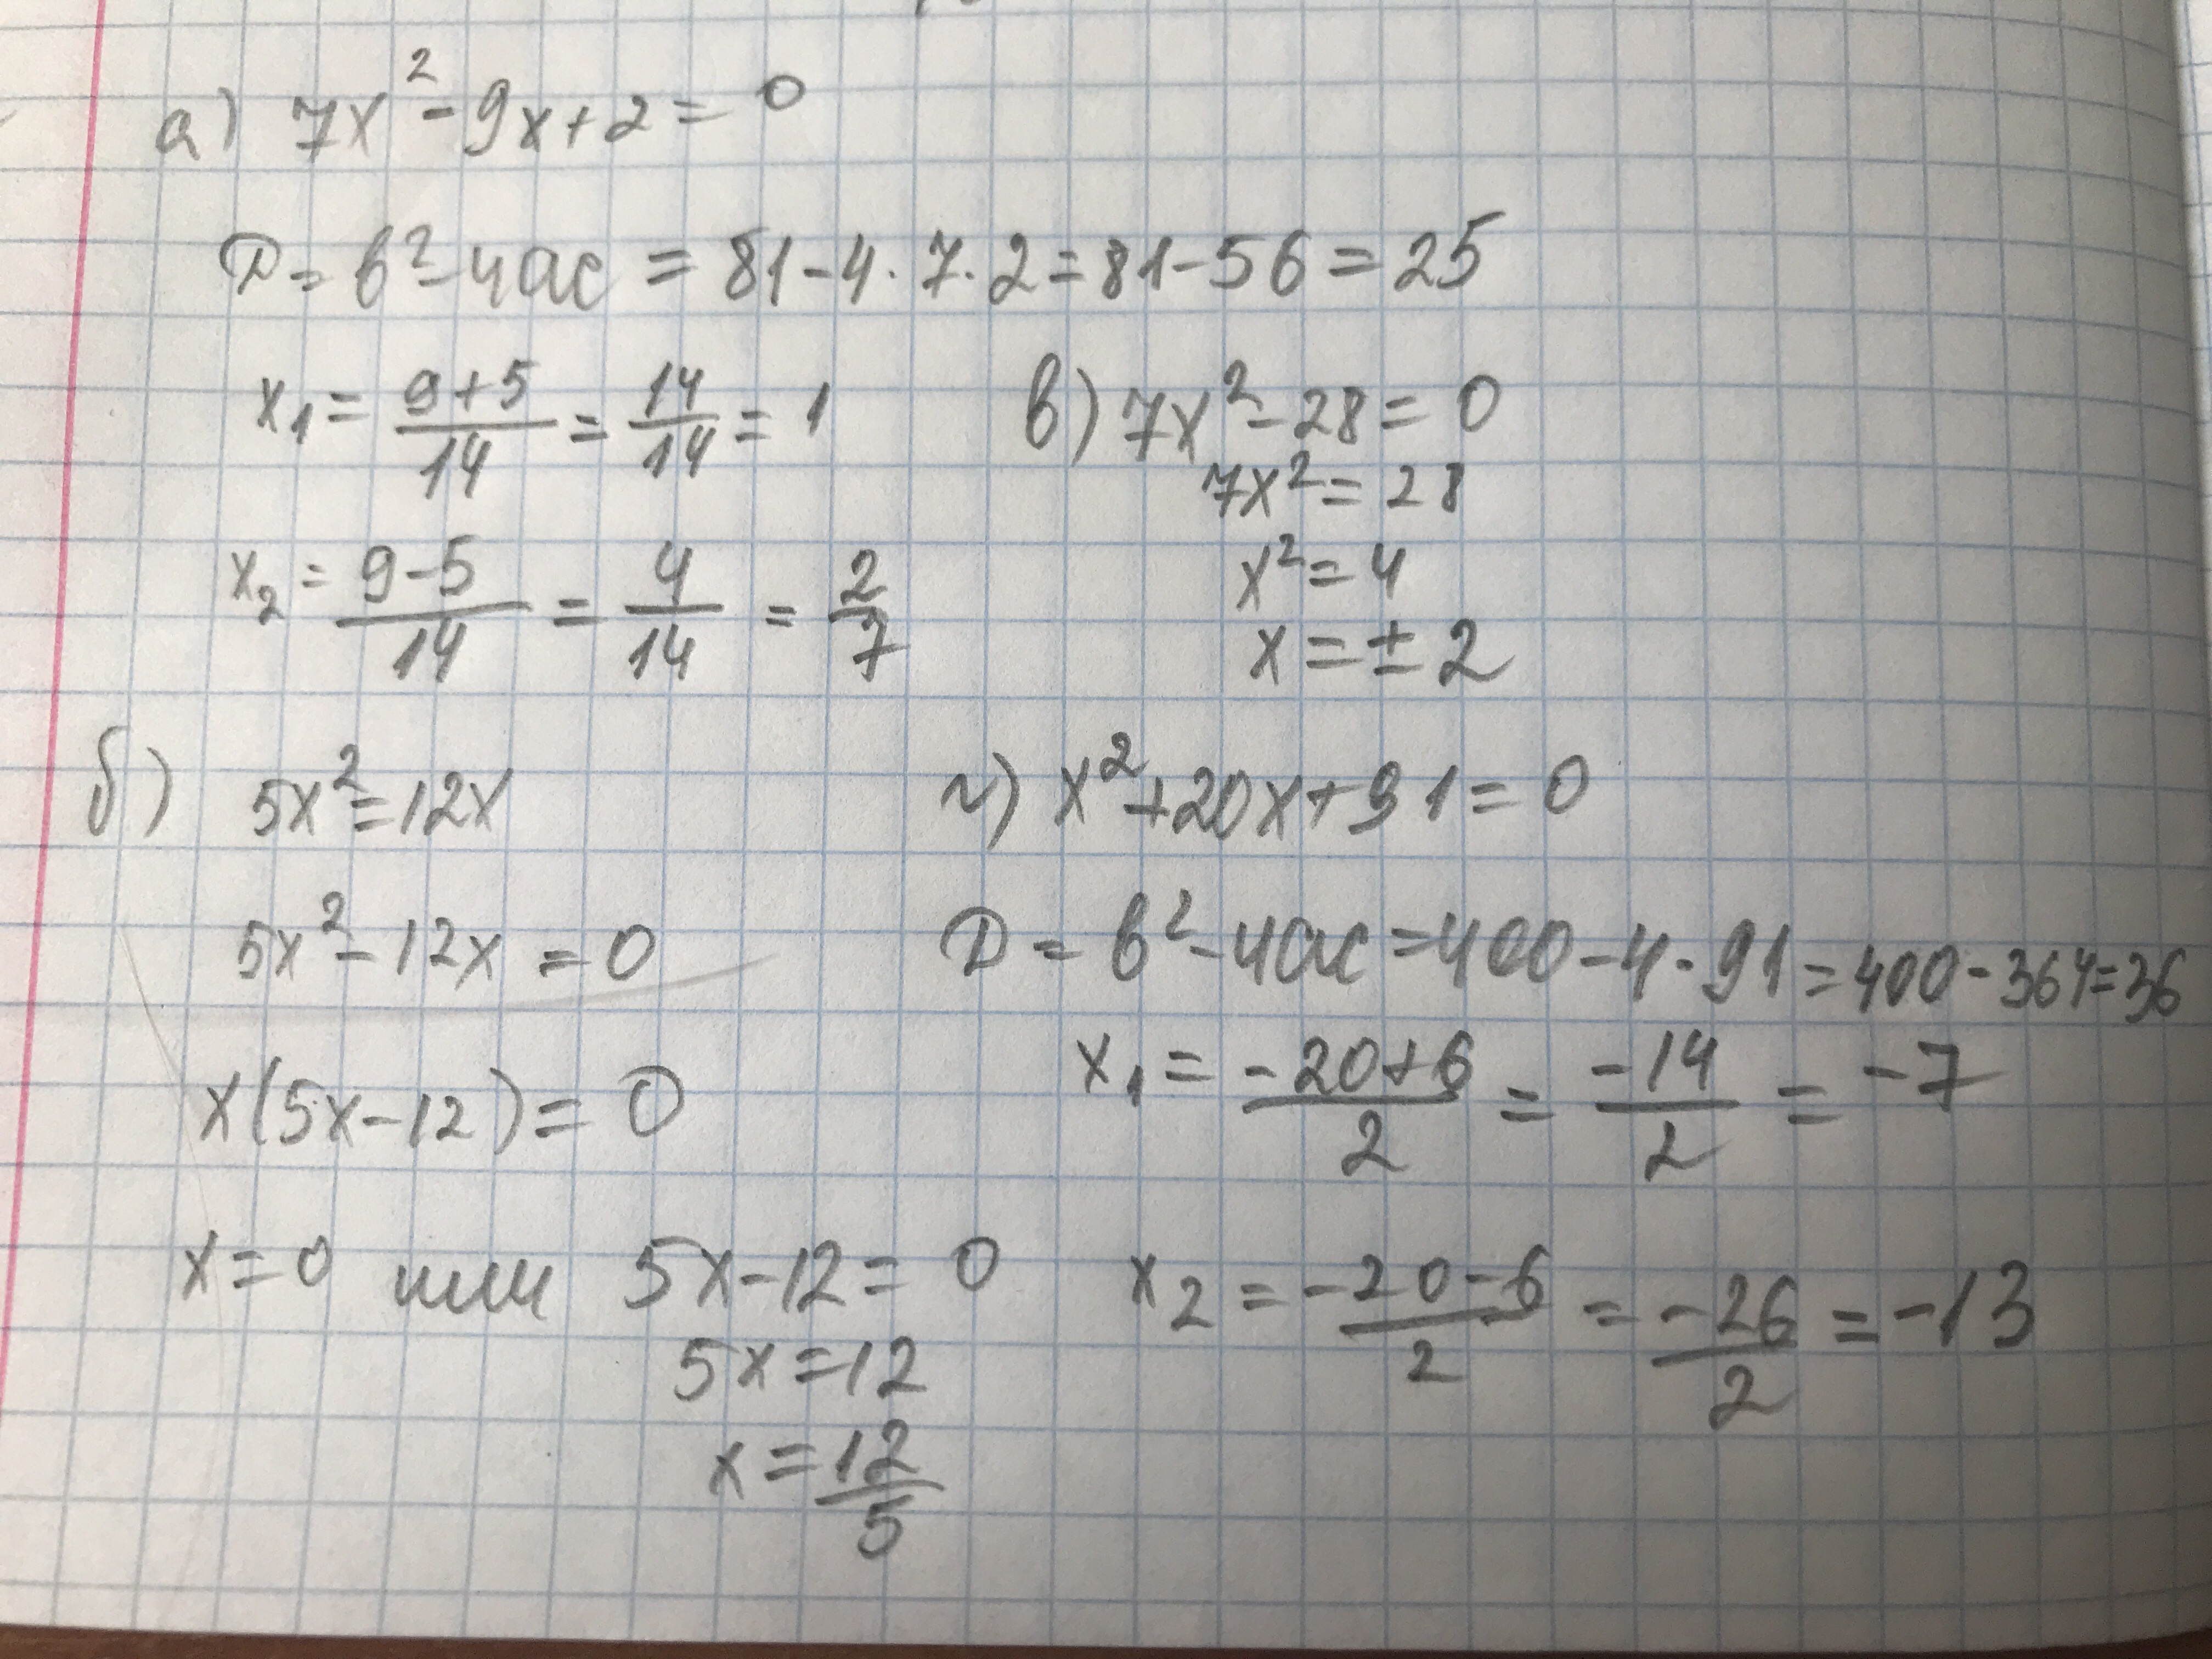 а) 7x² - 9x + 2 = 0
D = b² - 4ac = 81 - 4 · 7 · 2 = 81 - 56 = 25
x₁ = (9+5)/14 = 14/14 = 1
x₂ = (9-5)/14 = 4/14 = 2/7
в) 7x² - 28 = 0
7x² = 28
x² = 4
x = ± 2
б) 5x² = 12x
5x² - 12x = 0
x(5x - 12) = 0
x = 0 или 5x - 12 = 0
5x = 12
x = 12/5
г) x² + 20x + 91 = 0
D = b² - 4ac = 400 - 4 · 91 = 400 - 364 = 36
x₁ = (-20+6)/2 = -14/2 = -7
x₂ = (-20-6)/2 = -26/2 = -13